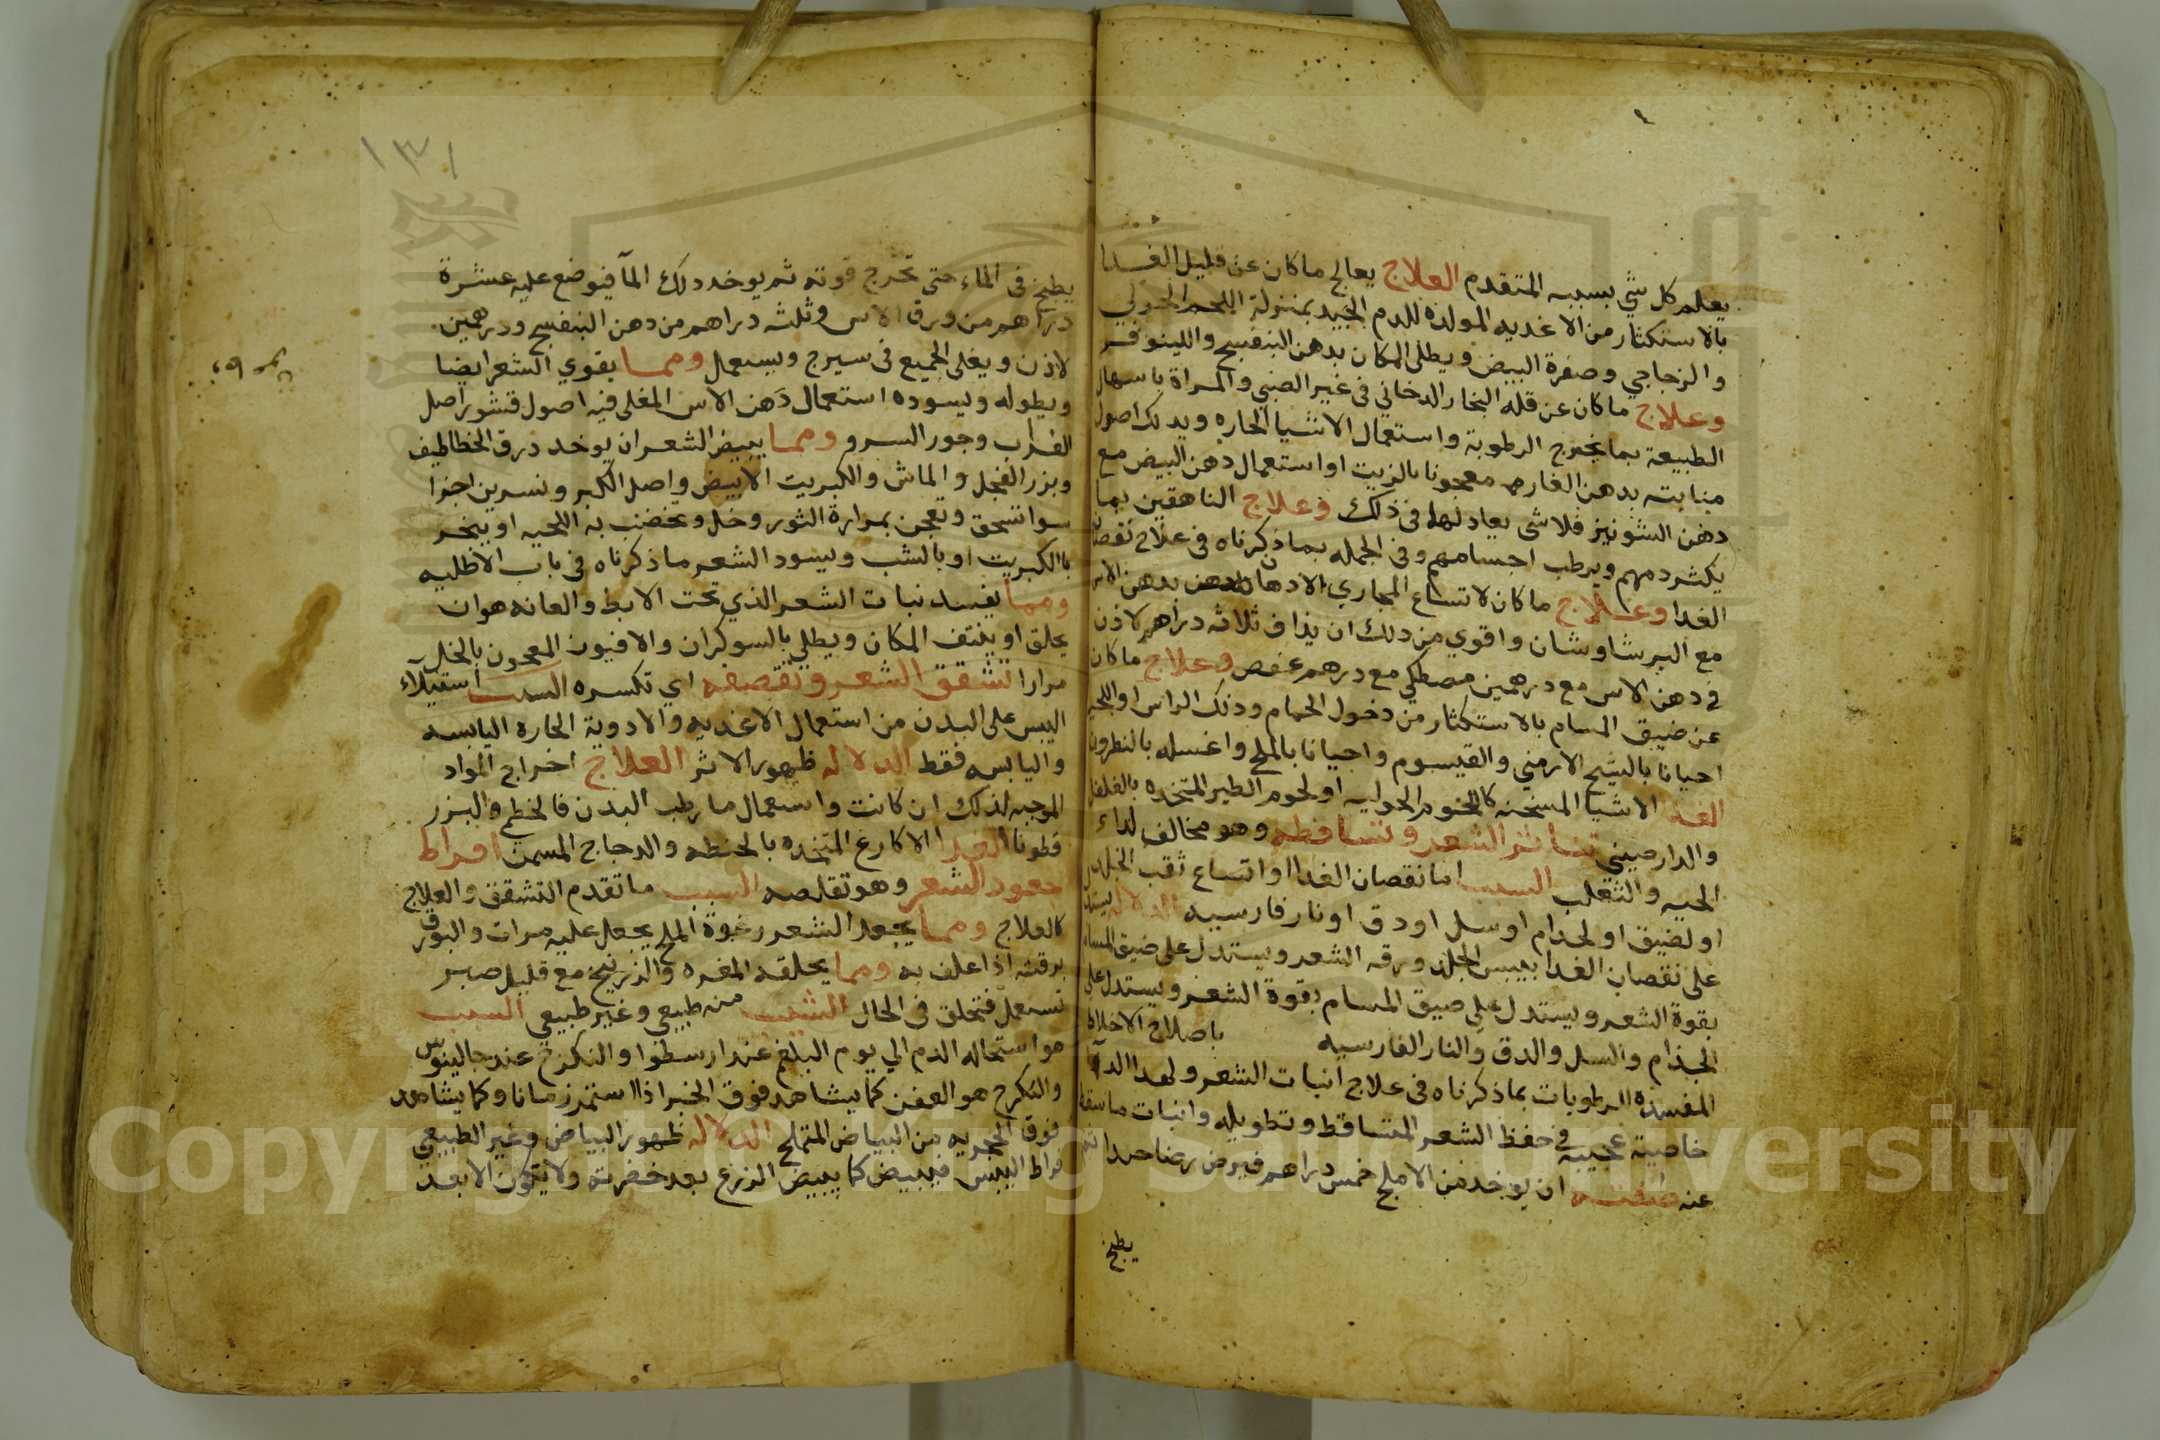 يعلم كل شي بسببه المتقدم العلاج يعالج ماكان عن قليل الغدا
بالاستكثار من الاغديه المولده للدم الجيد بمنزلة اللحم الحولي
والزجاجي وصفرة البيض ويطلى المكان بدهن البنفسج واللينوفر
وعلاج ماكان عن قله البخار الدخاني في غير الصبي والمراة باسهال
الطبيعة بما يخرج الرطوبة واستعمال الاشيا الحاره ويدلك اصول
منابته بدهن الغار معجونا بالزيت او استعمال دهن البيض مع
دهن الشونيز فلا شي يعادلها في ذلك وعلاج الناهقين بما
يكثر دمهم ويرطب اجسامهم وفي الجمله بما ذكرناه في علاج نقصان
الغدا وعلاج ماكان لاتساع المجاري الادهان بدهن الاس
مع البرشاوشان واقوي من دلك ان يذاف ثلاثه دراهم لاذن
في دهن الاس مع درهمين مصطكي مع درهم عفص وعلاج ماكان
عن ضيق المسام بالاستكثار من دخول الحمام ودلك الراس او اللحيه
احيانا بالشيح الارمني والقيسوم واحيانا بالملح واغسله بالنطرون
الغدا الاشيا المسخنه كاللحوم الحوليه او لحوم الطير المتخده بالفلفل
والدارصيني تناثر الشعر وتساقطه وهو مخالف لداء
الحيه والثعلب السبب اما نقصان الغدا او اتساع ثقب الجلد
او لضيق او لجدام او سل او دق او نار فارسيه الدلاله يستدل
على نقصان الغدا بيبس الجلد ورقه الشعر ويستدل على ضيق المسام
بقوة الشعر ويستدل على ضيق المسام بقوة الشعر ويستدل على
الجذام والسل والدق والنار الفارسيه باصلاح الاخلاط
المفسده الرطوبات بما ذكرناه في علاج انبات الشعر ولهدا الدآ
خاصية عجيبه في حفظ الشعر المتساقط وتطويله وانبات ما سقط
عنه ان يوخد من الاملج خمس دراهم فيرض رضا جيدا ثم
يطبخ
١٣١
يطبخ في الماء حتى تخرج قوته ثم يوخد دلك المآ فيوضع عليه عشرة
دراهم من ورق الاس وثلثه دراهم من دهن البنفسج ودرهمين
لاذن ويغلى الجميع في سيرج ويستعمل ومما يقوي الشعر ايضا
ويطوله ويسوده استعمال دهن الاس المغلى فيه اصول قشور اصل
الغراب وجوز السرو ومما يبيض الشعر ان يوخد درق الخطاطيف
وبزر الفجل والماش والكبريت الابيض واصل الكبر ونسرين اجزا
سوا تسحق وتعجن بمرارة الثور وخل وتخضب به اللحيه او يبخر
بالكبريت او بالشب ويسود الشعر ما ذكرناه في باب الاطليه
ومما يفسد نبات الشعر الذي تحت الابط والعانه هو ان
يحلق او ينتف المكان ويطلى بالسوكران والافيون المعجون بالخل
مرارا تشقق الشعر وتقصفه اي تكسره السبب استيلاء
اليبس على البدن من استعمال الاغديه والادوية الحاره اليابسه
واليابسه فقط الدلاله ظهور الاثر العلاج اخراج المواد
الموجبه لذلك ان كانت واستعمال ما رطب البدن فالخطمي والبزر
قطونا الغدا الاكارع المتخده بالحنطه والدجاج المسمن افراط
جعود الشعر وهو تقلصه السبب ما تقدم التشقق والعلاج
كالعلاج ومما يجعد الشعر رغوة الملح يجعل عليه مرات والبورق
برقته اذا علف به ومما يحلقه المغره والزرنيخ مع قليل صبر
تستعمل فتحلق في الحال الشيب منه طبيعي وغير طبيعي السبب
هو استحاله الدم الي يوم البلغم عند ارسطوا والتكرج عند جالينوس
والتكرج هو العفن كما يشاهد فوق الخبز اذا استمر زمانا وكما يشاهد
فوق من البياض المتملح الدلاله ظهور البياض وغير الطبيعي
فراط اليبس فيبيض كما يبيض الزرع بعد خضرته ولا يكون الا بعد
Copyright © King Saud University